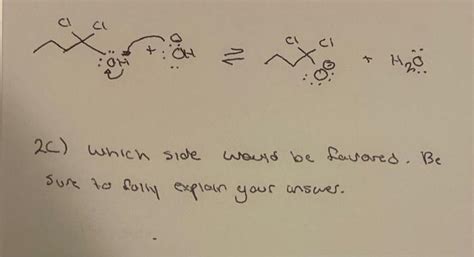 Cl Cl Cl Cl
:ÖH + :ÖH ⇌ :Ö:⊖ + H₂Ö:
2C) which side would be favored. Be
sure to fully explain your answer.